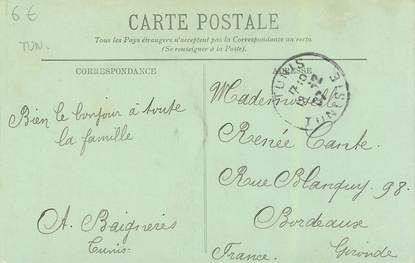 6 €
TUN.
CARTE POSTALE
Tous les Pays étrangers n'acceptent pas la Correspondance au recto.
(Se renseigner à la Poste).
CORRESPONDANCE
ADRESSE
Bien le bonjour à toute
la famille
A. Baigneres
Tunis
Mademoiselle
Renée Cante.
Rue Blanquy 98.
Bordeaux
France. Gironde
TUNIS
TUNISIE